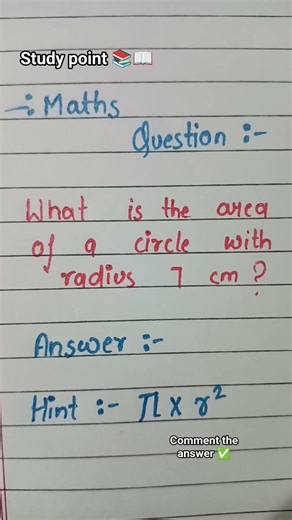 Study point 📚📖
-: Maths
Question :-
What is the area
of a circle with
radius 7 cm?
Answer :-
Hint :- π x r²
Comment the
answer ✅